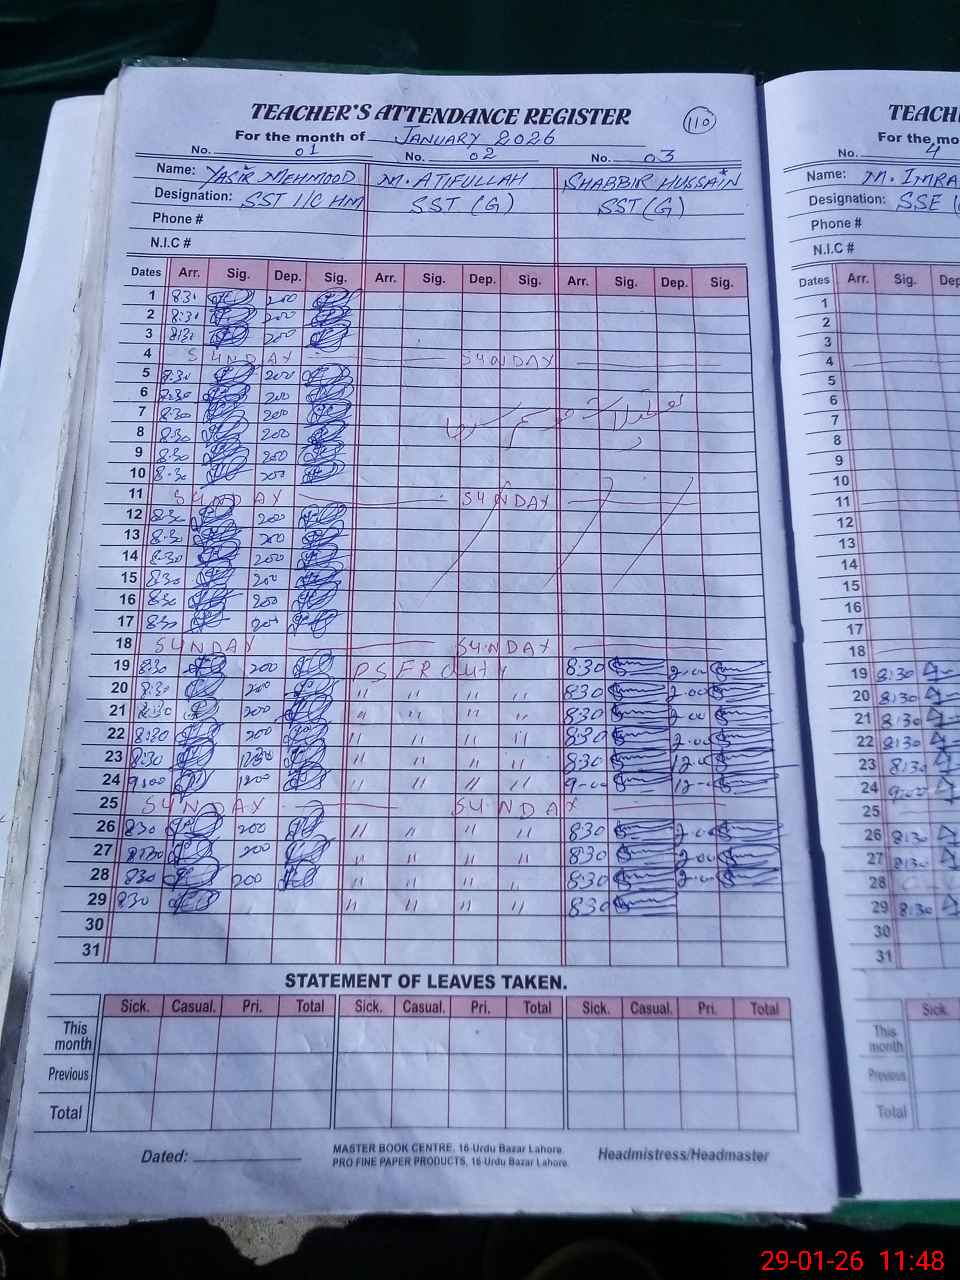 TEACHER'S ATTENDANCE REGISTER
110
For the month of JANUARY 2026
No. 01 No. 02 No. 03
Name: YASIR MEHMOOD M. ATIFULLAH SHABBIR HUSSAIN
Designation: SST I/C HM SST (G) SST (G)
Phone #
N.I.C #
Dates Arr. Sig. Dep. Sig. Arr. Sig. Dep. Sig. Arr. Sig. Dep. Sig.
1 831 200
2 8:30 200
3 8:30 200
4 SUNDAY SUNDAY
5 8:30 200
6 8:30 200
7 8:30 200
8 8:30 200
9 8:30 200
10 8:30 200
11 SUNDAY SUNDAY
12 8:30 200
13 8:30 200
14 8:30 200
15 830 200
16 830 200
17 830 200
18 SUNDAY SUNDAY
19 830 200 830 2:00
20 8:30 200 " " " " 830 2:00
21 8:30 200 " " " " 830 2:00
22 8:30 200 " " " " 830 2:00
23 8:30 1230 " " " " 830 12:00
24 9:00 1200 " " " " 9-00 12-00
25 SUNDAY SUNDAY
26 830 200 " " " " 830 2:00
27 8:30 200 " " " " 830 2:00
28 830 200 " " " " 830 2:00
29 830 " " " " 830
30
31
STATEMENT OF LEAVES TAKEN.
Sick. Casual. Pri. Total Sick. Casual. Pri. Total Sick. Casual. Pri. Total
This month
Previous
Total
Dated:
MASTER BOOK CENTRE, 16-Urdu Bazar Lahore.
PRO FINE PAPER PRODUCTS, 16-Urdu Bazar Lahore.
Headmistress/Headmaster
TEACH
For the mo
No. 4
Name: M. IMRA
Designation: SSE
Phone #
N.I.C #
Dates Arr. Sig. Dep
1
2
3
4
5
6
7
8
9
10
11
12
13
14
15
16
17
18
19 8:30
20 8:30
21 8:30
22 8:30
23 8:30
24 9:00
25
26 8:30
27 8:30
28
29 8:30
30
31
Sick.
This month
Previous
Total
29-01-26 11:48